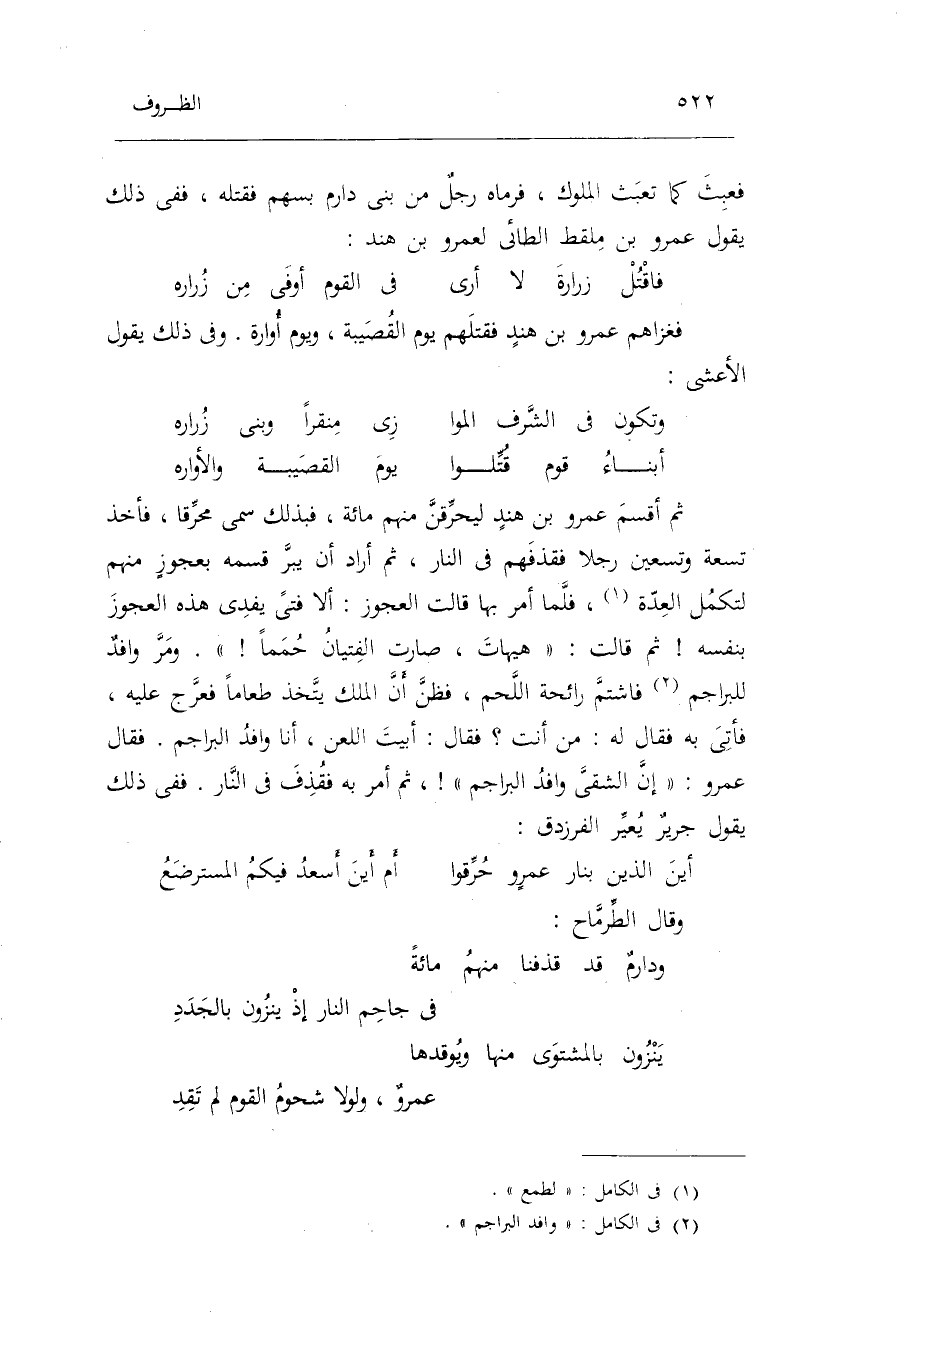 ٥٢٢ الظـروف
فعبِثَ كما تعبَث الملوك ، فرماه رجلٌ من بنى دارم بسهم فقتله ، ففى ذلك
يقول عمرو بن مِلقط الطائى لعمرو بن هند :
فاقْتُلْ زرارةَ لا أرى فى القوم أوفَى مِن زُراره
فغزاهم عمرو بن هندٍ فقتلَهم يوم القُصَيبة ، ويوم أُوارة . وفى ذلك يقول
الأعشى :
وتكون فى الشَّرف الموا زِى مِنقراً وبنى زُراره
أبنـــاءُ قوم قُتِّلـــوا يومَ القصَيبـــة والأواره
ثم أقسمَ عمرو بن هندٍ ليحرِّقنَّ منهم مائة ، فبذلك سمى محرِّقا ، فأخذ
تسعة وتسعين رجلا فقذفَهم فى النار ، ثم أراد أن يبرَّ قسمه بعجوزٍ منهم
لتكمُل العِدّة (١) ، فلَّما أمر بها قالت العجوز : ألا فتىً يفدِى هذه العجوزَ
بنفسه ! ثم قالت : « هيهاتَ ، صارت الفِتيانُ حُمَماً ! » . ومَرَّ وافدٌ
للبراجم (٢) فاشتمَّ رائحة اللَّحم ، فظنَّ أَنَّ الملك يتَّخذ طعاماً فعرَّج عليه ،
فأتِىَ به فقال له : من أنت ؟ فقال : أبيتَ اللعن ، أنا وافدُ البراجم . فقال
عمرو : « إنَّ الشقىَّ وافدُ البراجم » ! ، ثم أمر به فقُذِفَ فى النَّار . ففى ذلك
يقول جريرٌ يُعيِّر الفرزدق :
أينَ الذين بنار عمرٍو حُرِّقوا أَم أَينَ أَسعدُ فيكمُ المسترضَعُ
وقال الطِّرِمَّاح :
ودارمٌ قد قذفنا منهمُ مائةً
فى جاحِم النار إذْ ينزُون بالجَدَدِ
يَنْزُون بالمشتوَى منها ويُوقدها
عمروٌ ، ولولا شحومُ القوم لم تَقِدِ
(١) فى الكامل : « لطمع » .
(٢) فى الكامل : « وافد البراجم » .